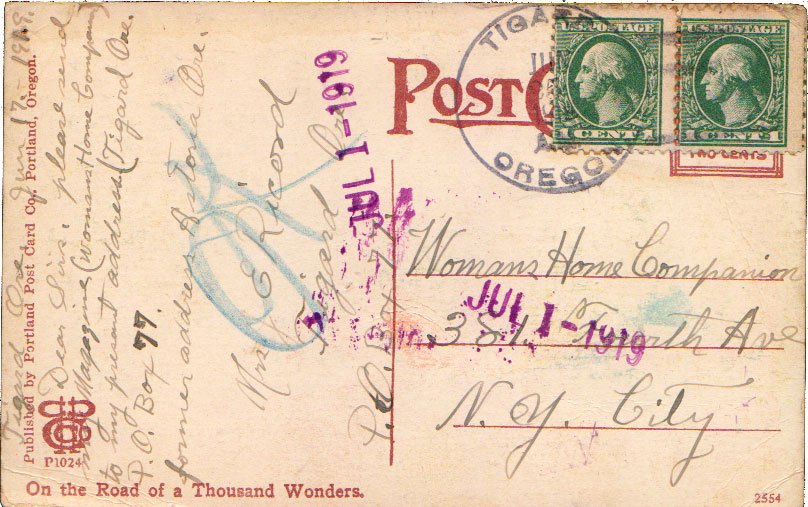 Tigard Ore Jun 17 - 1919.
Dear Sirs. please send
my Magazine (Womans Home Companion)
to my present address (Tigard Ore.
P.O. Box 77.
former address Astoria Ore.
Mrs E Ricord
Tigard Ore
P.O. Box 77
OK
JUL 1-1919
POST C
TIGARD
OREGON
U.S. POSTAGE
1 CENT 1
U.S. POSTAGE
1 CENT 1
TWO CENTS
Womans Home Companion
381 Fourth Ave
N.Y. City
JUL 1-1919
Published by Portland Post Card Co., Portland, Oregon.
P1024
On the Road of a Thousand Wonders.
2554